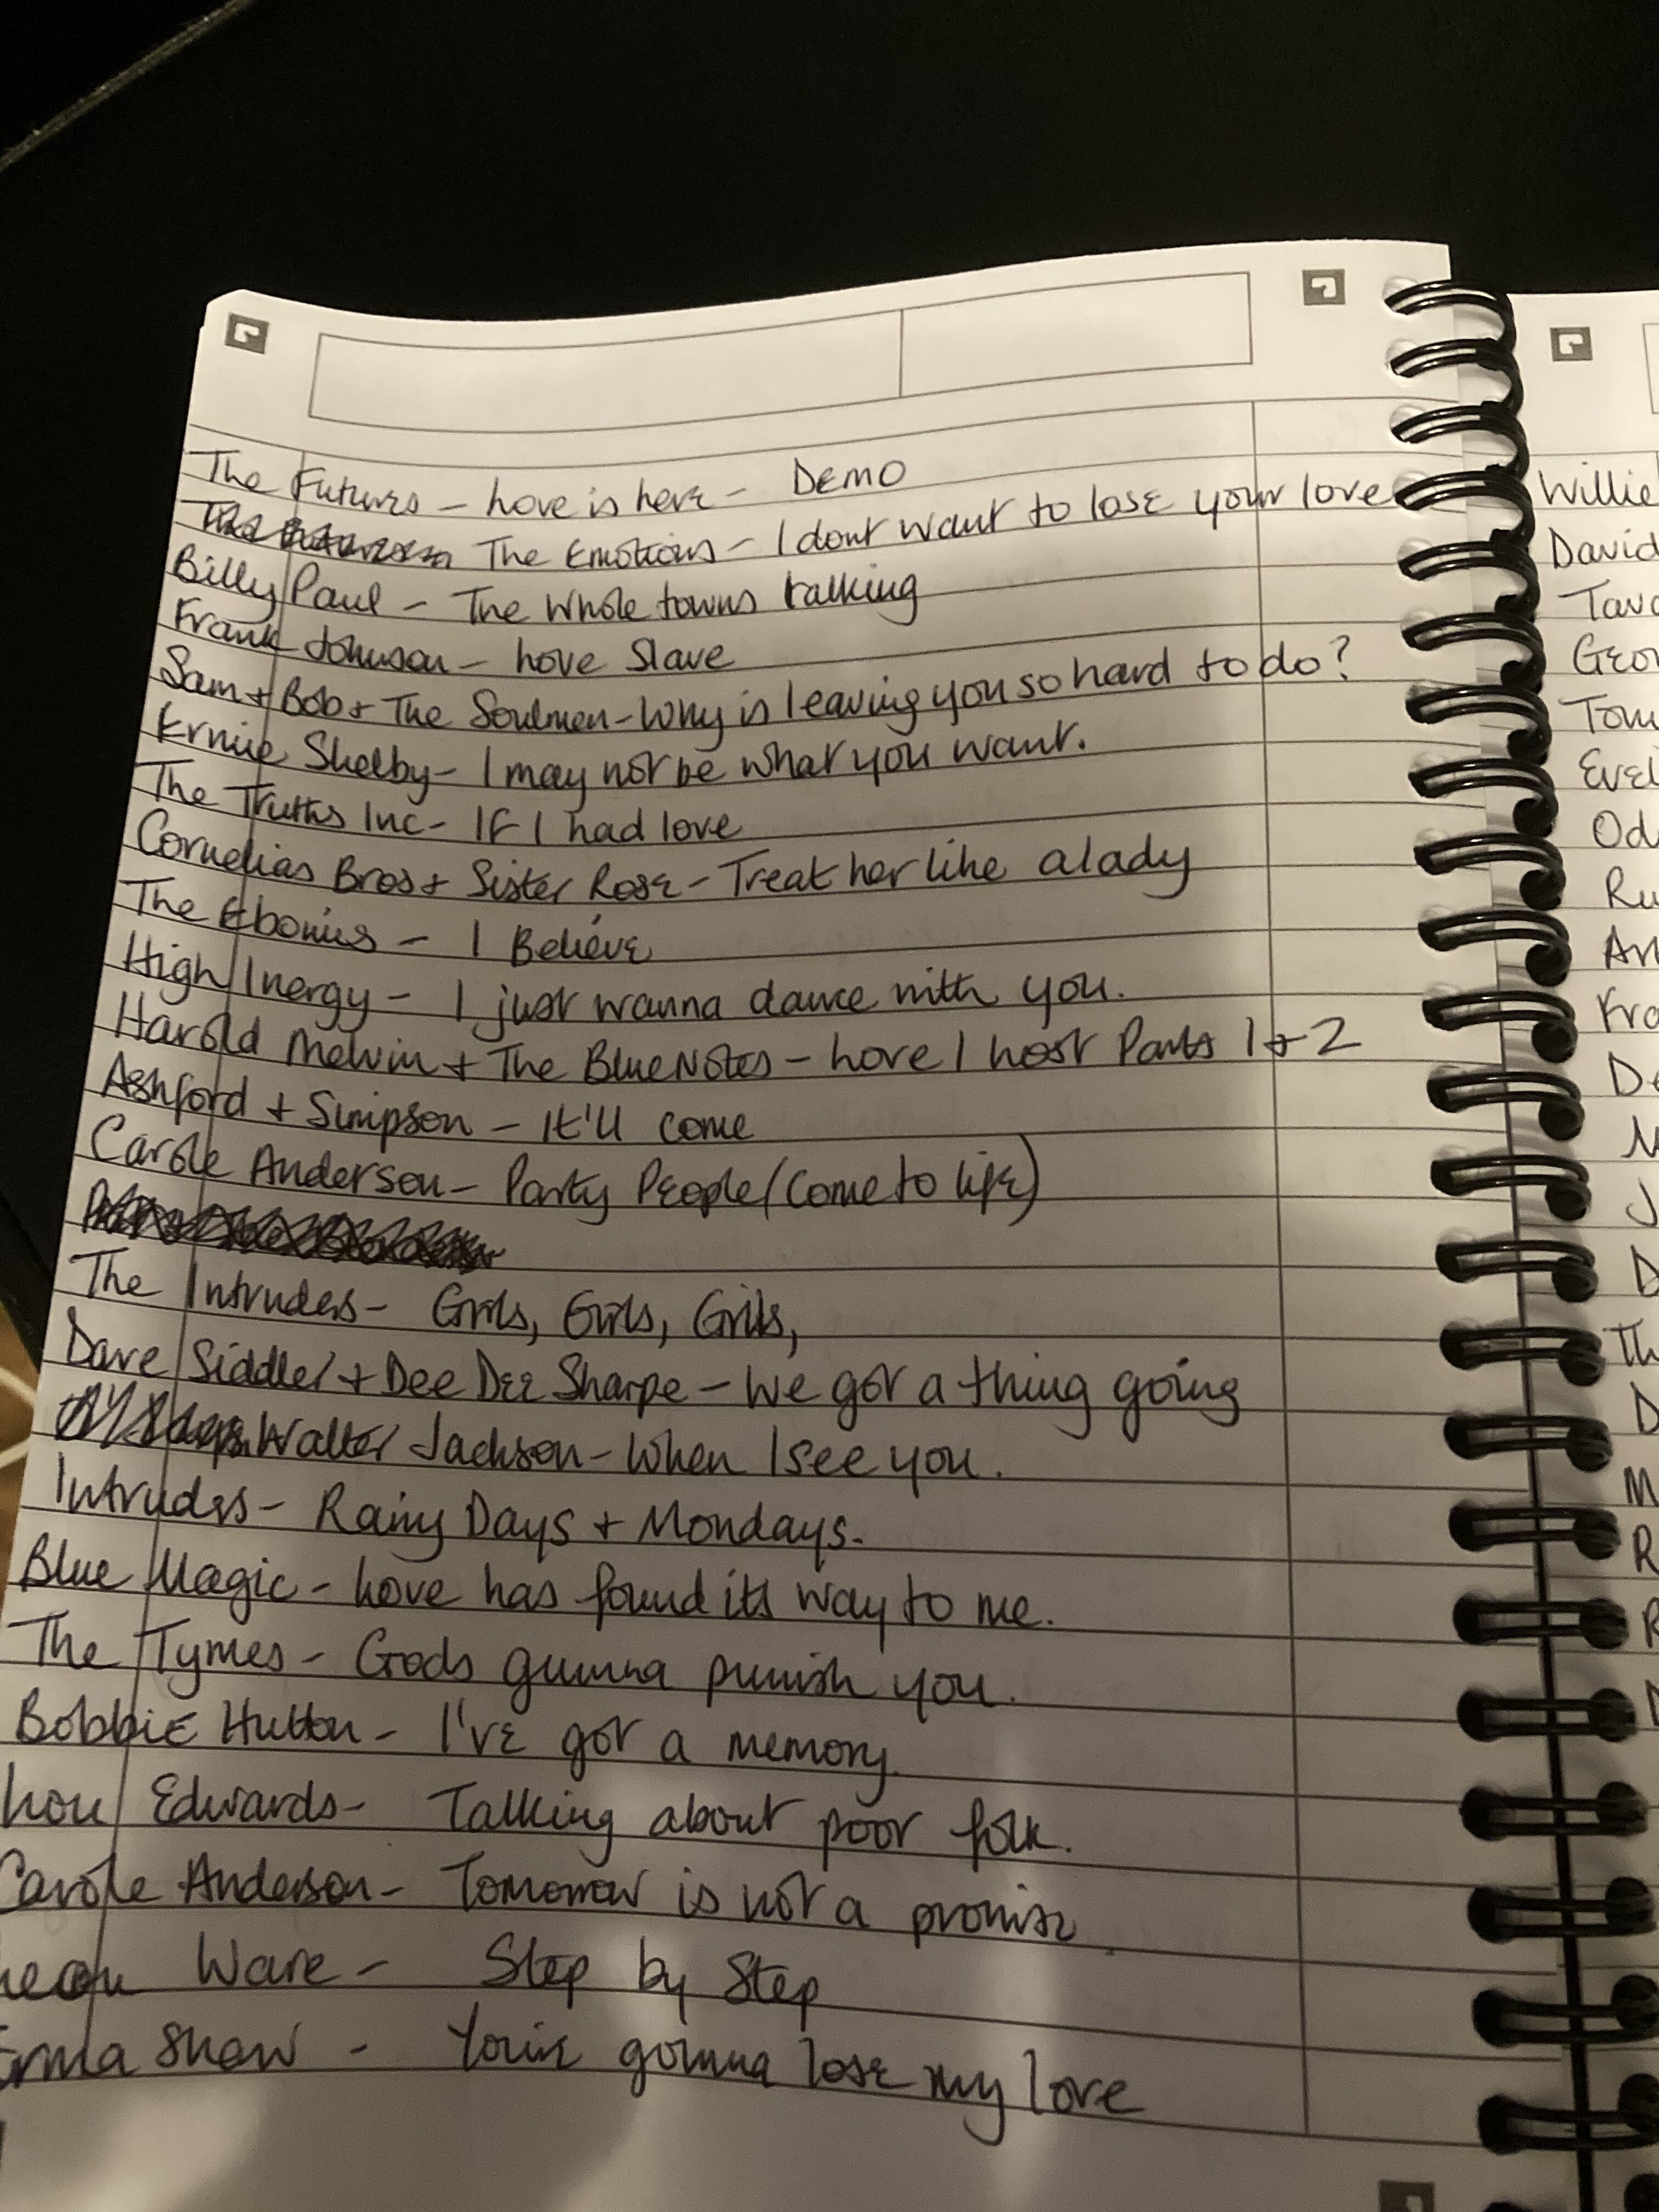 The Futures - Love is here - DEMO
The Emotions - I dont want to lose your love
Billy Paul - The Whole towns talking
Frank Johnson - Love Slave
Sam + Bob + The Soulmen - Why is leaving you so hard to do?
Ernie Shelby - I may not be what you want.
The Truths Inc - IF I had love
Cornelias Bros + Sister Rose - Treat her like a lady
The Ebonies - I Believe
High Inergy - I just wanna dance with you.
Harold Melvin + The Blue Notes - Love I Lost Parts 1 + 2
Ashford + Simpson - It'll come
Carole Anderson - Party People (Come to life)
The Intruders - Girls, Girls, Girls,
Dave Siddler + Dee Dee Sharpe - We got a thing going
Walter Jackson - When I see you.
Intruders - Rainy Days + Mondays.
Blue Magic - Love has found its way to me.
The Tymes - Gods gunna punish you.
Bobbie Hutton - I've got a memory.
Lou Edwards - Talking about poor folk.
Carole Anderson - Tomorrow is not a promise.
Leon Ware - Step by Step
Erma Shaw - You're gonna lose my love
Willie
David